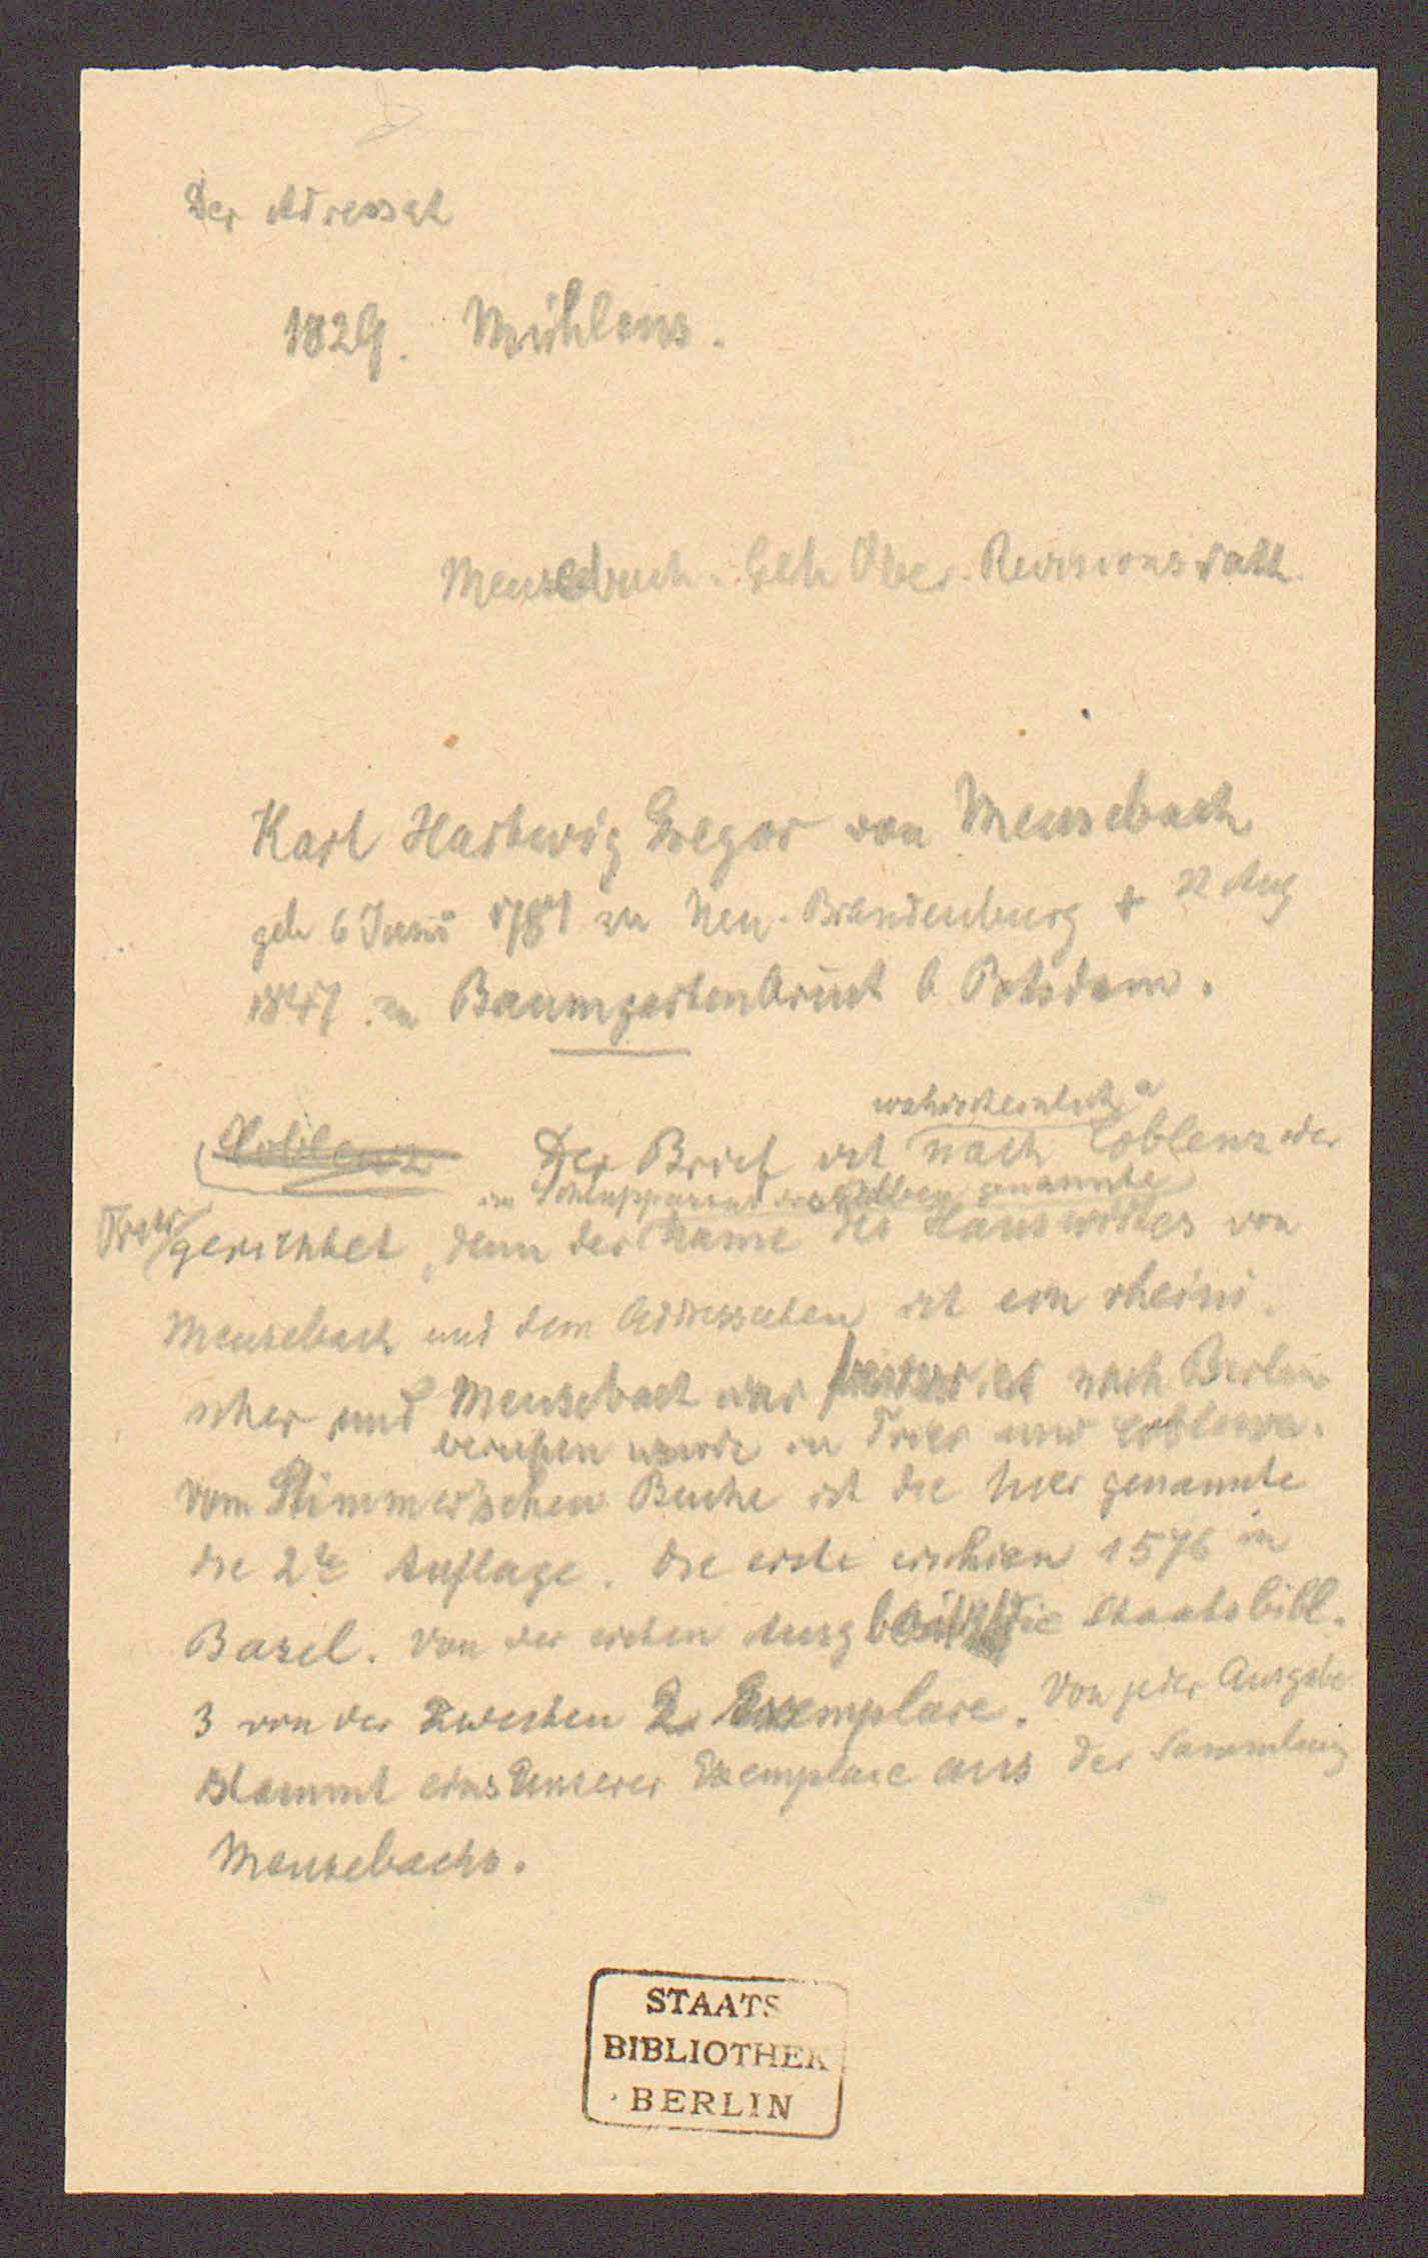 Der Adressat
1829. Mühlens.
Meusebach. Geh Ober-Revisionsrath.
Karl Hartwig Gregor von Meusebach
geb 6 Juni 1781 zu Neu-Brandenburg † 22 Aug
1847 zu Baumgartenbrück b Potsdam.
wahrscheinlich
Coblenz Der Brief ist nach Coblenz oder
im desselben genannte
Trier gerichtet, denn der Name des Hauswirtes von
Meusebach und dem Adressaten ist ein rheini-
scher und Meusebach war bevor er nach Berlin
berufen wurde in Trier und Coblenz.
Vom Stimmer'schen Buche ist die hier genannte
die 2te Auflage. Die erste erschien 1576 in
Basel. Von der ersten Ausg besitzt die Staatsbibl.
3 von der zweiten 2 Exemplare. Von jeder Ausgabe
stammt eins unserer Exemplare aus der Sammlung
Meusebachs.
STAATS
BIBLIOTHEK
BERLIN